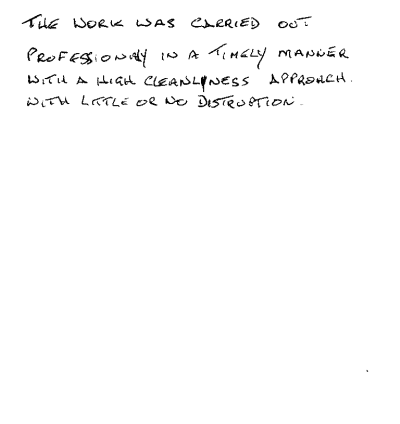 THE WORK WAS CARRIED OUT
PROFESSIONALLY IN A TIMELY MANNER
WITH A HIGH CLEANLINESS APPROACH.
WITH LITTLE OR NO DISTRUPTION.